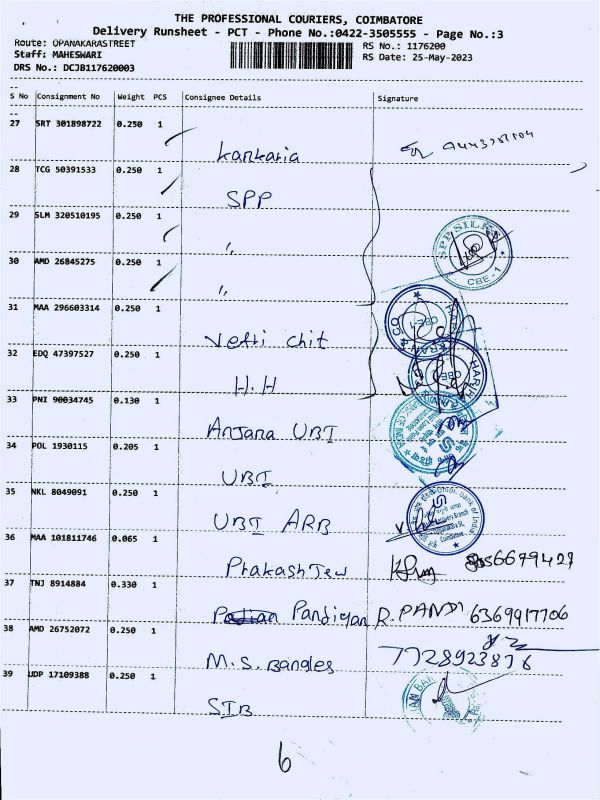 THE PROFESSIONAL COURIERS, COIMBATORE
Delivery Runsheet - PCT - Phone No.:0422-3505555 - Page No.:3
Route: OPANAKARASTREET
RS No.: 1176200
Staff: MAHESWARI
RS Date: 25-May-2023
DRS No.: DCJB117620003
S No Consignment No Weight PCS Consignee Details Signature
27 SRT 301898722 0.250 1
Kankaria
28 TCG 50391533 0.250 1
SPP
29 SLM 320510195 0.250 1
"
SPP SILKS
CBE-1
30 AMD 26845275 0.250 1
"
31 MAA 296603314 0.250 1
Vetti chit
CBE-1
32 EDQ 47397527 0.250 1
H.H
CBE
33 PNI 90034745 0.130 1
Anjana UBI
34 POL 1930115 0.205 1
UBI
35 NKL 8049091 0.250 1
UBI ARB
36 MAA 101811746 0.065 1
Prakash Jew
37 TNJ 8914884 0.330 1
Pandiyan R. PANDI 6369917706
38 AMD 26752072 0.250 1
M.S. Bangles 7728923876
39 UDP 17109388 0.250 1
SIB
6